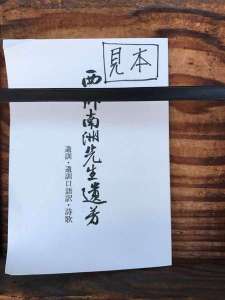 見本
西郷南洲先生遺芳
遺訓・遺訓口語訳・詩歌